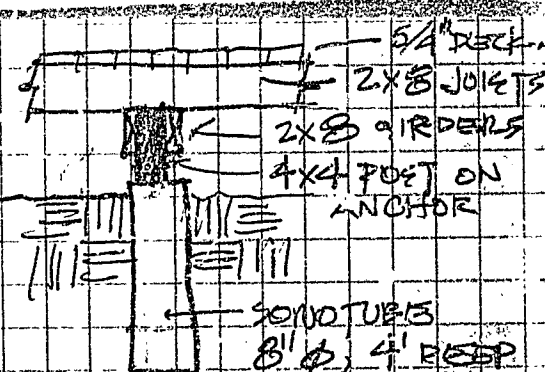 5/4" DECK.
2X8 JOISTS
2X8 GIRDERS
4X4 POST ON
ANCHOR
SONOTUBES
8" Ø, 4' DEEP